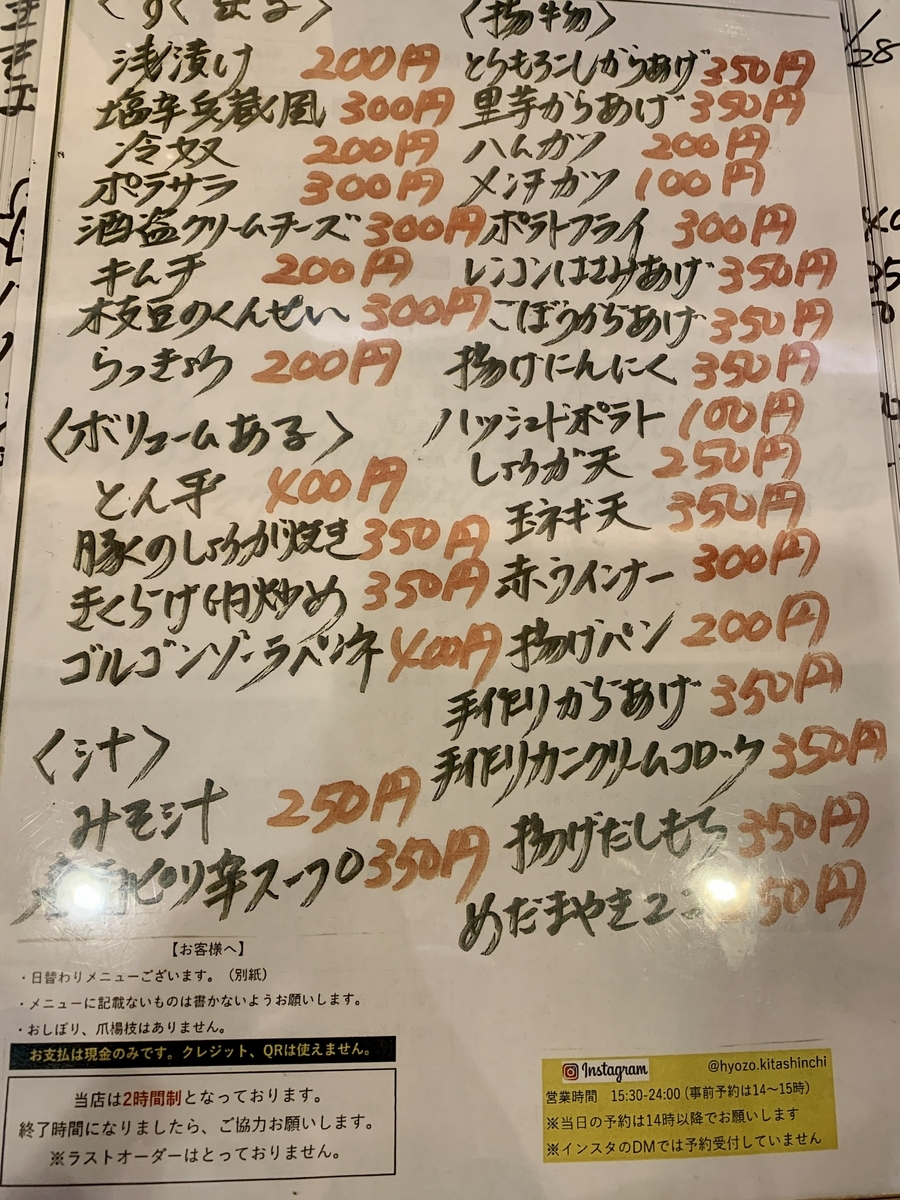 〈すぐ出る〉
浅漬け 200円
塩辛兵蔵風 300円
冷奴 200円
ポテサラ 300円
酒盗クリームチーズ 300円
キムチ 200円
枝豆のくんせい 300円
らっきょう 200円
〈ボリュームある〉
とん平 400円
豚のしょうが焼き 350円
きくらけ卵炒め 350円
ゴルゴンゾーラペンネ 400円
〈汁〉
みそ汁 250円
ピリ辛スープ 350円
〈揚物〉
とうもろこしからあげ 350円
里芋からあげ 350円
ハムカツ 200円
メンチカツ 100円
ポテトフライ 300円
レンコンはさみあげ 350円
ごぼうからあげ 350円
揚げにんにく 350円
ハッシュドポテト 100円
しょうが天 250円
玉ネギ天 350円
赤ウインナー 300円
揚げパン 200円
手作りからあげ 350円
手作りカニクリームコロッケ 350円
揚げだしもち 350円
めだまやき2コ 50円
【お客様へ】
・日替わりメニューございます。（別紙）
・メニューに記載ないものは書かないようお願いします。
・おしぼり、爪楊枝はありません。
お支払は現金のみです。クレジット、QRは使えません。
当店は2時間制となっております。
終了時間になりましたら、ご協力お願いします。
※ラストオーダーはとっておりません。
Instagram @hyozo.kitashinchi
営業時間 15:30-24:00（事前予約は14～15時）
※当日の予約は14時以降でお願いします
※インスタのDMでは予約受付していません